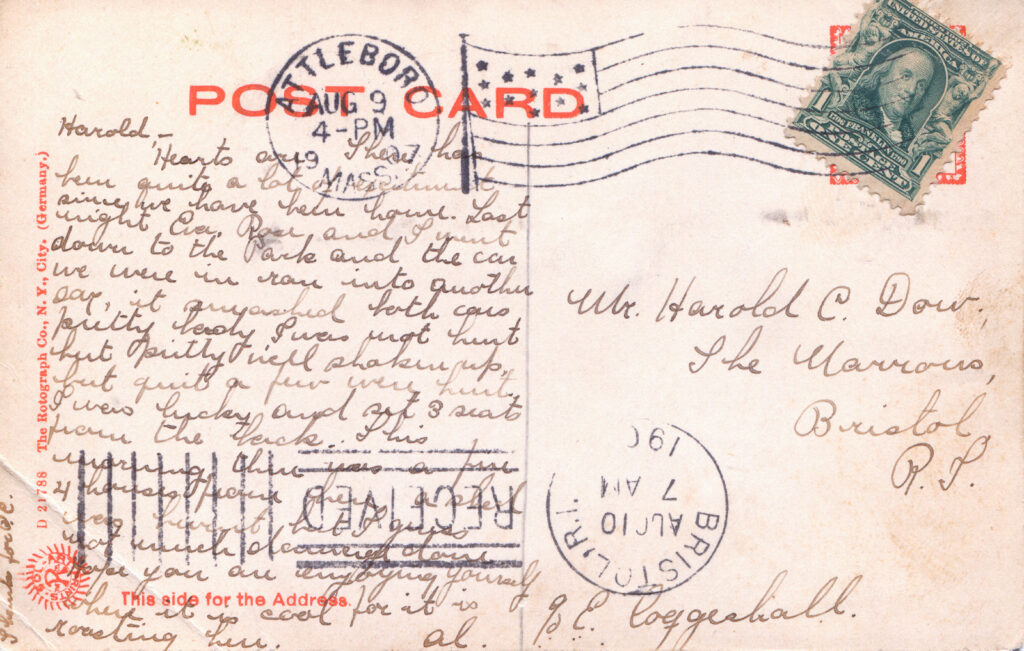 POST CARD
ATTLEBORO
AUG 9
4-PM
1907
MASS.
Harold,—
Hearts are There has
been quite a lot of excitment
since we have been home. Last
night Eva, Rose and I went
down to the Park and the car
we were in ran into another
car, it smashed both cars
pritty bady, I was not hurt
but pritty well shaken up,
but quit a few were hurt,
I was lucky and set 3 seats
from the back. This
morning there was a fire
4 houses from here a shed
was burnt but I guess
not much damage done
Hope you are enjoying yourself
where it is cool for it is
roasting here. al.
for de C.
D 21788 The Rotograph Co., N. Y., City. (Germany.)
This side for the Address.
RECEIVED
UNITED STATES OF
AMERICA
1 1
FRANKLIN
Mr. Harold C. Dow,
The Narrows,
Bristol,
R. I.
BRISTOL, R.I.
AUG 10
7 AM
190
% E. Coggeshall.